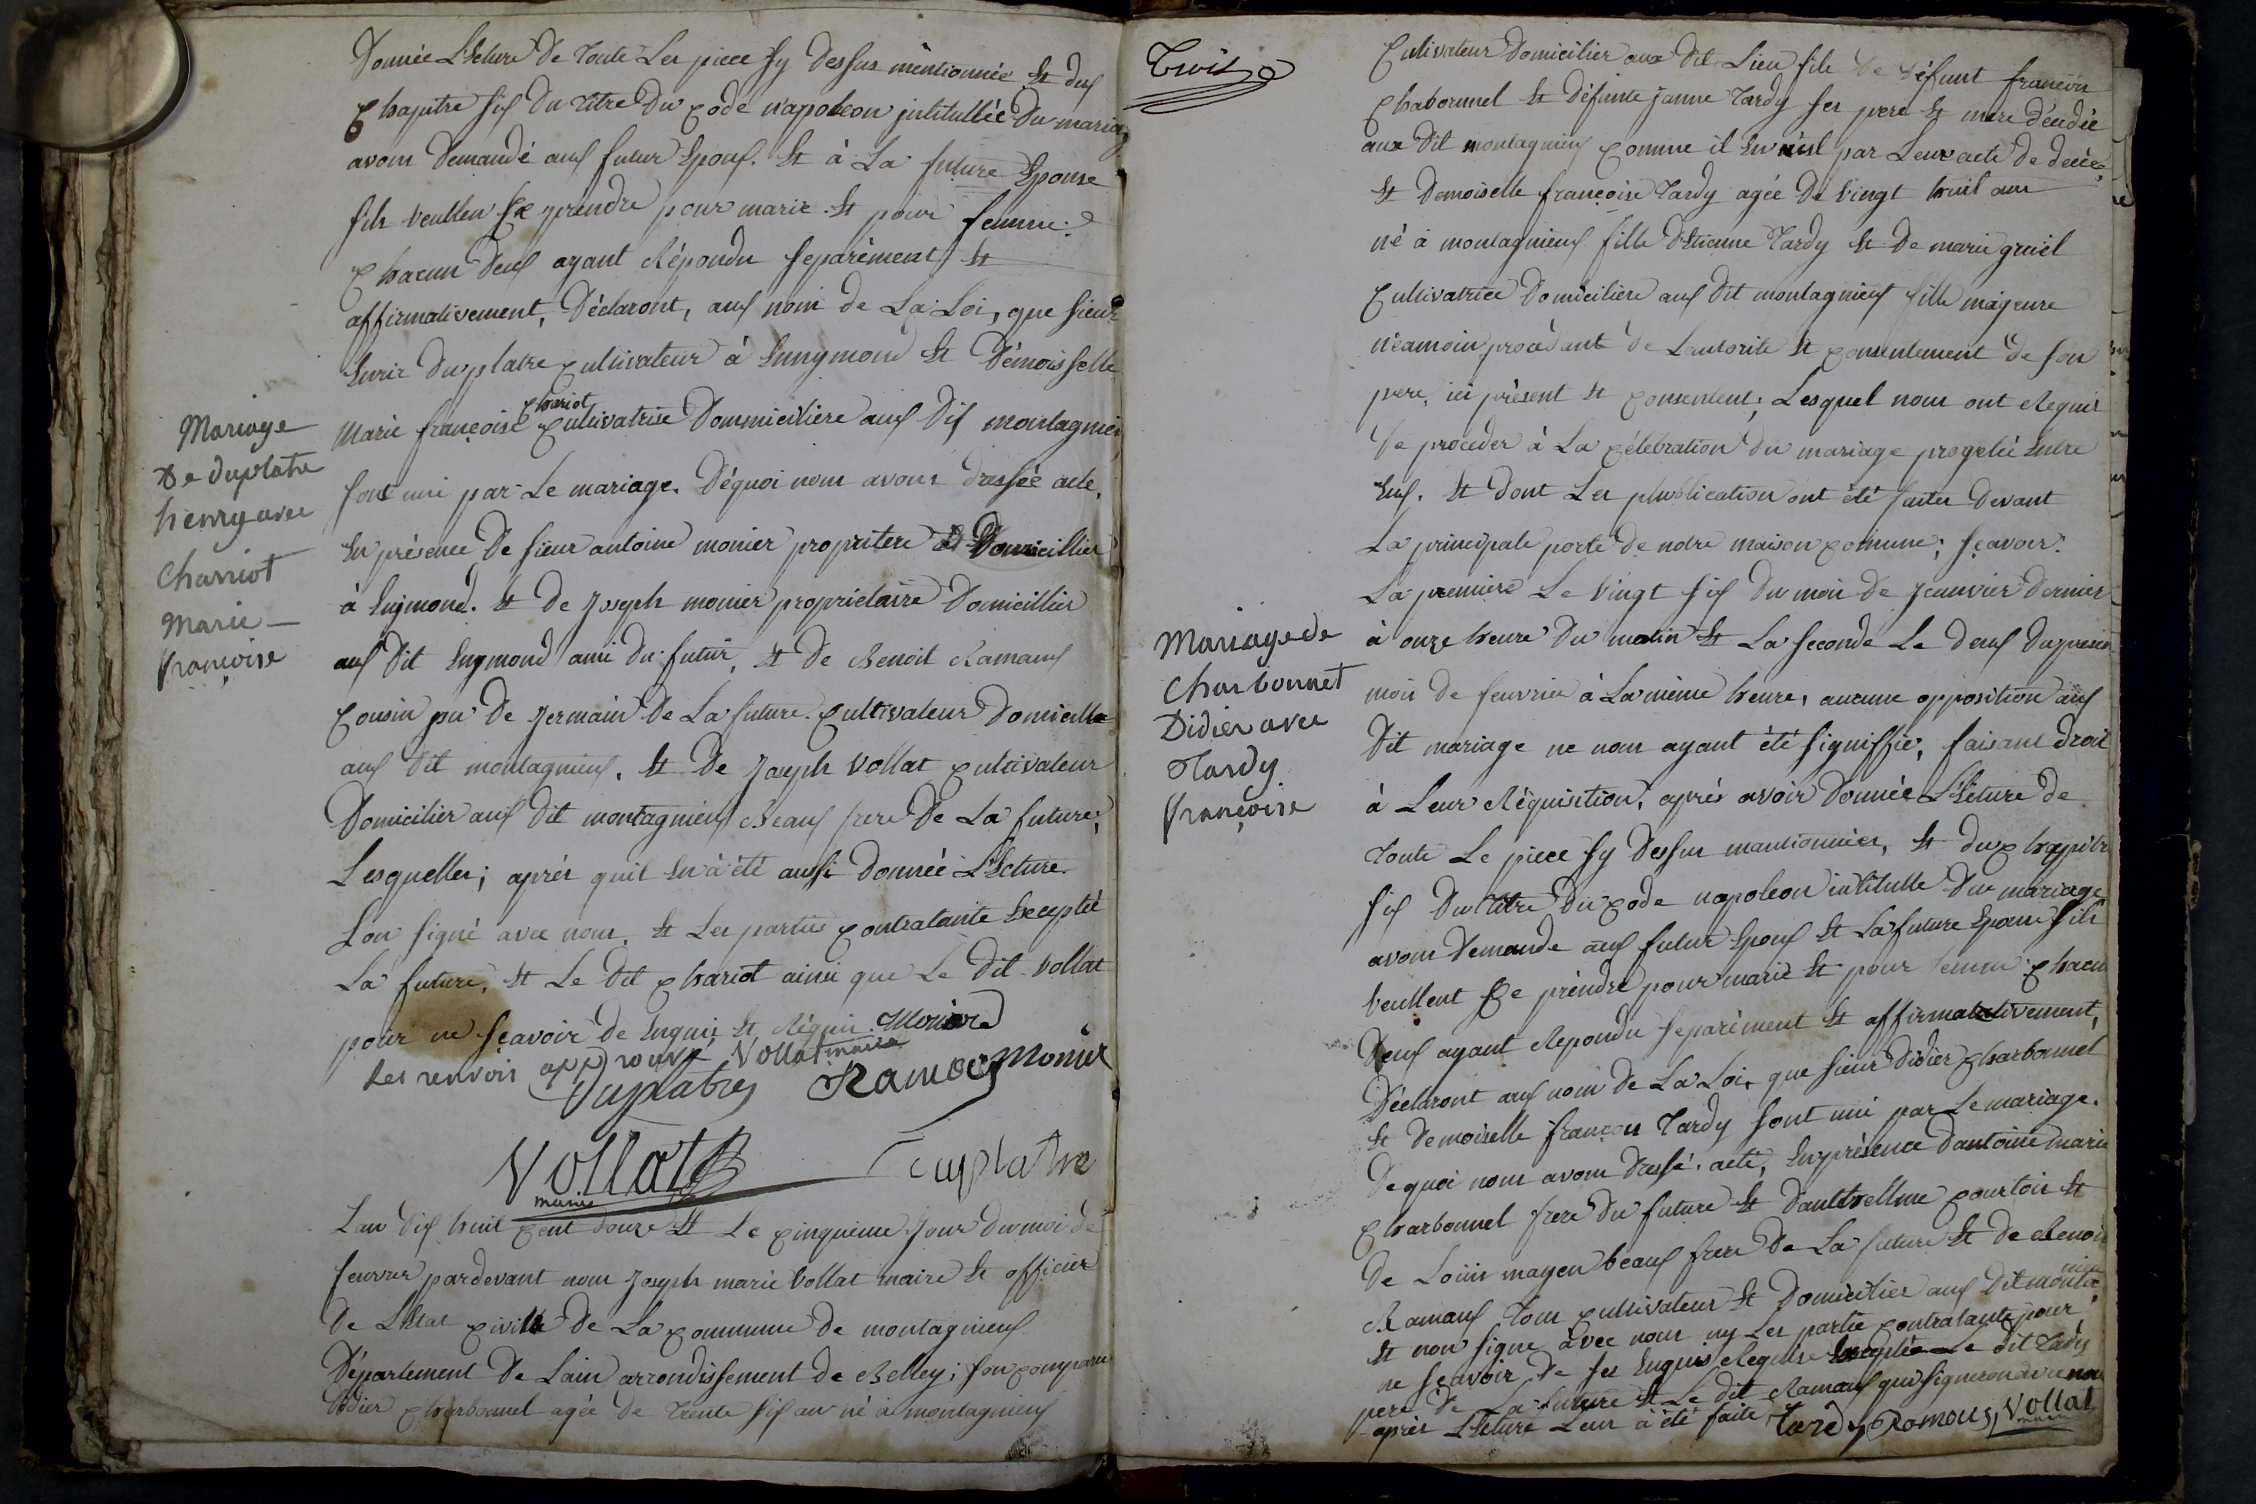 Donnée Lecture De Toute Les piece sy Dessus mentionnée Et duf
Chapitre six Du Titre Du Code napoleon intitullée Du mariag
avom Demandé aux futur Epoux. Et à La future Epouse
sils veullen se prendre pour marie Et pour femme.
Chacun Deux ayant Répondu separément Et
affirmativement, Déclaront, aux nom de La Loi, que sieur
henrie Duplatre Cultivateur à Ennymond Et Démoisselle
Chariot
Marie françoise Cultivatrise Dommiciliere aux Dit montagnieu
sont uni par Le mariage. Déquoi nom avons dressée acte,
En présence De sieur antoine monier propritere Et Domicillier
à Enimond. Et De Joseph monier proprietaire Domicillier
aux Dit Enymond ami du futur, Et De Benoit Ramaux
Cousin jssu De Jermain De La future. Cultivateur Domicillie
aux Dit montagnieux. Et De Joseph Vollat Cultivateur
Domicilier aux Dit montagnieux Beaux frere De La future,
Lesquelles; aprés quil En à été aussi Donnée Lecture
Lon signé avec nom. Et Les partiés Contratante Exceptée
La future, Et Le Dit Chariot ainsi que Le Dit Vollat
pour ne sçavoir de Enquis Et Réquis Monier
Les renvois approuvé Vollat maire
Duplatre Ramoux Monier
Vollat Duplatre
maire
Lan Dix huit Cent Douze Et Le Cinquieme Jour Du moi de
feuvrier pardevant nom Joseph marie Vollat maire Et officier
De LEtat Civille De La Commune de montagnieux
Département De Lain arrondissement de Belley; son Comparu
Didier Charbonnel agée De Trente six an né à montagnieux
Mariage
De duplatre
henry avec
Charriot
Marie
françoise
Trois
Cultivateur Domicilier aux Dit Lieu fils De défunt françois
Chabonnel Et Défunte janne Tardy ses pere Et mere décédée
aux Dit montagnieux Comme il En résul par Leur acte De decée,
Et Demoiselle françoise Tardy agée De Vingt huit an
né à montagnieux fille DEtienne Tardy Et De marie gruel
Cultivatrice Domiciliere aux Dit montagnieux fille majeure
néamoin procédant De Lautorite Et Consentement De son
pere, ici présent Et Consentent; Lesquel nom ont Requis
De proceder à La Célébration Du mariage progetée Entre
Eux. Et Dont Les plublication ont été faites Devant
La principale porte De notre maison Comune; sçavoir.
La premiere Le Vingt six Du moi De Jeanvier Dernier
à onze heure Du matin Et La seconde Le Deux Dupresen
moi De feuvrier à La même heure, aucune opposition aux
Dit mariage ne nom ayant été signiffié, faisant Droit
à Leur Réquisition, aprés avoir Donnée Lecture De
Toute Le piece sy Dessus mantionnées, Et Du Chapitre
six Du Titre Du Code napoleon intitulle Du mariage
avom Demande aux futur Epoux Et La future Epouse sils
Veullent se préndre pour marié Et pour femme Chacu
Deux ayant Repondu separément Et affirmatativement,
Déclaront aux nom De La Loi, que sieur Didier Charbonnel
Et Demoiselle françois Tardy sont uni par Le mariage.
Dequoi nom avom Dressé acte, En présence Dantoine marie
Charbonnel frere Du future Et Danthellme Courtois Et
De Louis mayen beaux frere De La future Et De Benoi
Ramaux Tom Cultivateur Et Domicilier aux Dit monta
nieu
Et non signe avec nom ny Les partie Contratante pour
ne sçavoir De ses Enquis Requise Exceptée Le Dit Tardy
pere De La future Et Le Dit Ramaux qui signeron avec nou
aprés Lecture Leur à été faite Tardy Ramous, Vollat
maire
Mariage de
Charbonnet
Didier avec
Tardy
françoise